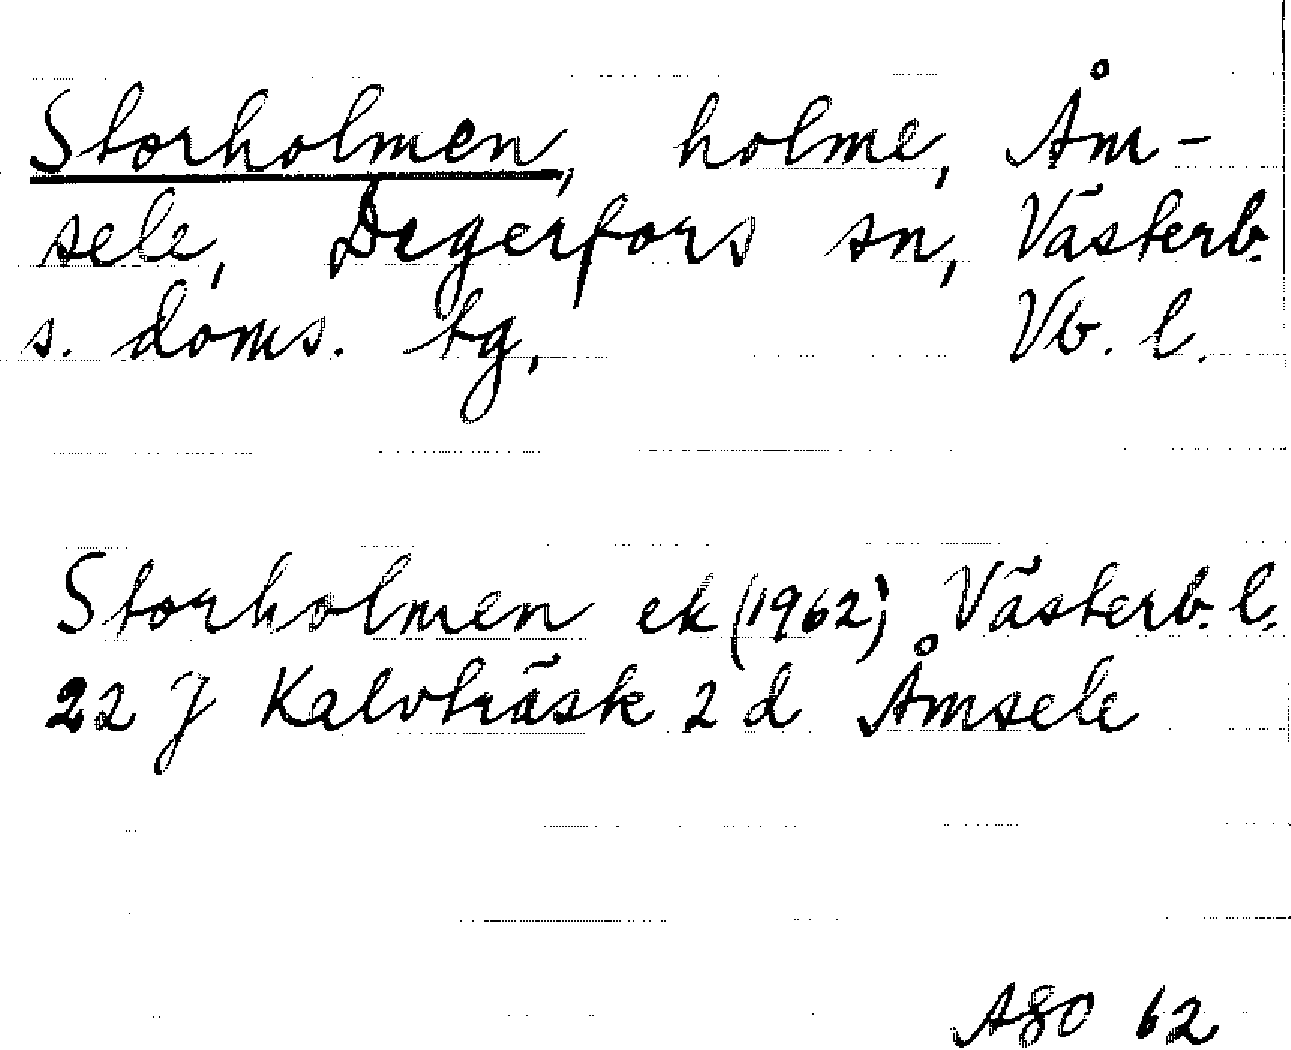 Storholmen, holme, Åm-
sele, Degerfors sn, Västerb.
s. doms. tg, Vb. l.
Storholmen ek (1962) Västerb. l.
22 J Kalvträsk 2 d Åmsele
62